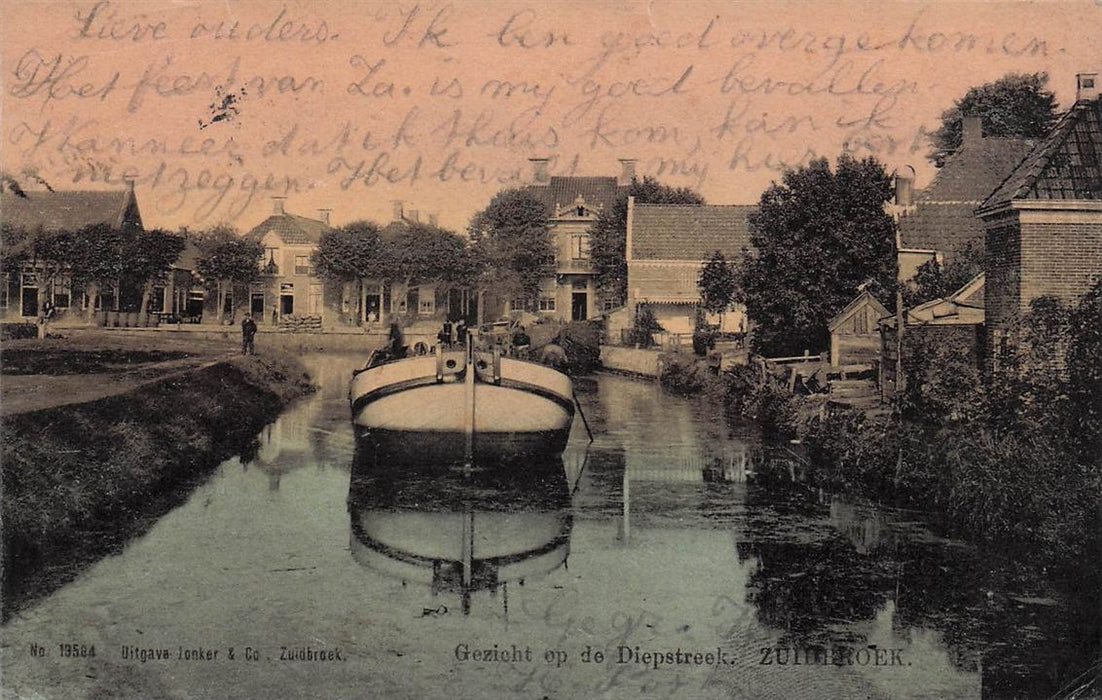 Lieve ouders. Ik ben goed overgekomen.
Het feest van Za. is my goed bevallen.
Wanneer dat ik thuis kom, kan ik
met zeggen. Het bevalt my hier
Geg.
No. 13584 Uitgave Jonker & Co., Zuidbroek.
Gezicht op de Diepstreek. ZUIDBROEK.